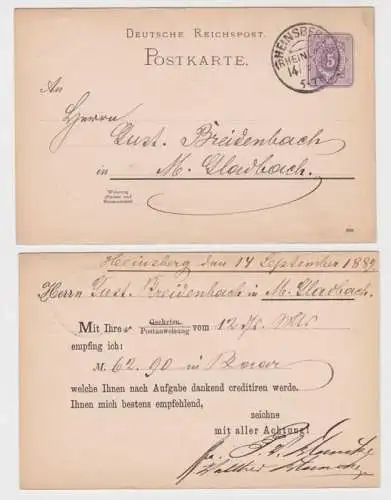 DEUTSCHE REICHSPOST.
POSTKARTE.
HEINSBERG
(RHEINL
14
5-
5
An
Herrn
Gust. Breidenbach
in M. Gladbach.
Wohnung
(Strasse und
Hausnummer)
Heinsberg den 14 September 1889
Herrn Gust. Breidenbach in M. Gladbach.
Mit Ihre Geehrten vom 12
Postanweisung
empfing ich:
M. 62.90 in
welche Ihnen nach Aufgabe dankend creditiren werde.
Ihnen mich bestens empfehlend,
zeichne
mit aller Achtung!